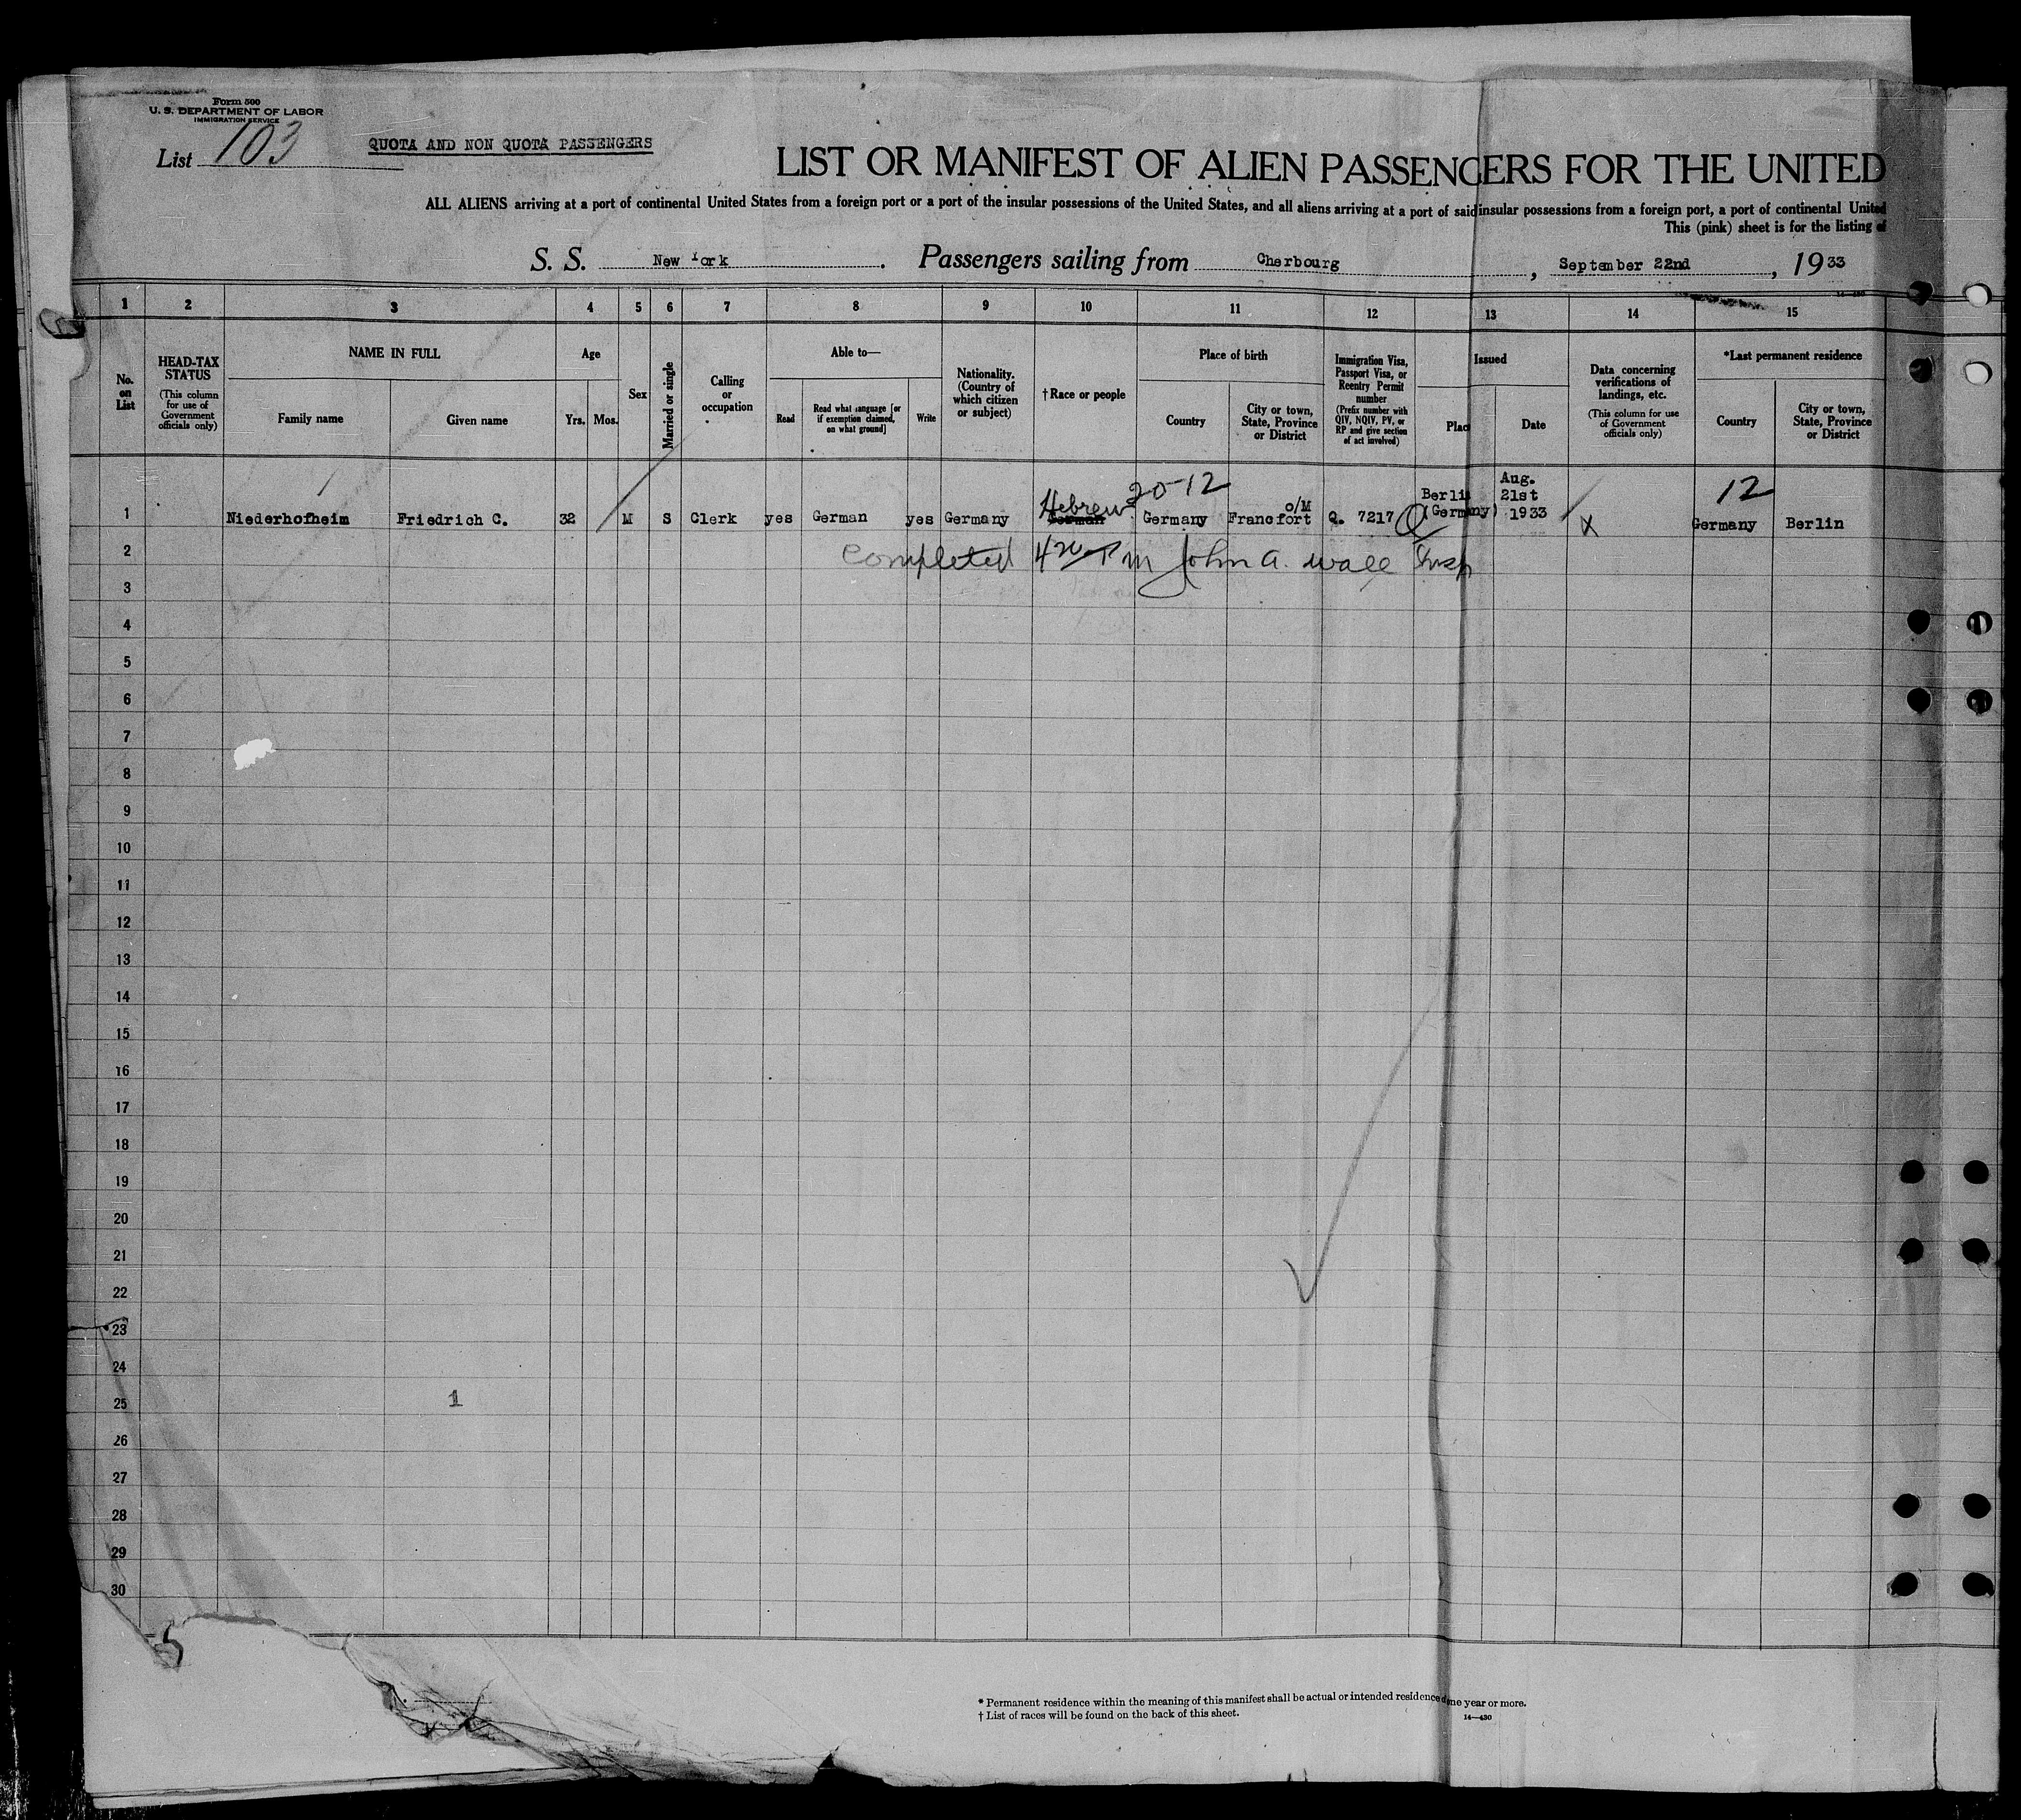 Form 500
U. S. DEPARTMENT OF LABOR
IMMIGRATION SERVICE
List 103
QUOTA AND NON QUOTA PASSENGERS
LIST OR MANIFEST OF ALIEN PASSENGERS FOR THE UNITED
ALL ALIENS arriving at a port of continental United States from a foreign port or a port of the insular possessions of the United States, and all aliens arriving at a port of said insular possessions from a foreign port, a port of continental United
This (pink) sheet is for the listing of
S. S. New York. Passengers sailing from Cherbourg, September 22nd, 1933
1 2 3 4 5 6 7 8 9 10 11 12 13 14 15
No. on List
HEAD-TAX STATUS
(This column for use of Government officials only)
NAME IN FULL
Family name
Given name
Age
Yrs. Mos.
Sex
Married or single
Calling or occupation
Able to—
Read
Read what language [or if exemption claimed, on what ground]
Write
Nationality. (Country of which citizen or subject)
† Race or people
Place of birth
Country
City or town, State, Province or District
Immigration Visa, Passport Visa, or Reentry Permit number
(Prefix number with QIV, NQIV, PV, or RP and give section of act involved)
Issued
Place
Date
Data concerning verifications of landings, etc.
(This column for use of Government officials only)
*Last permanent residence
Country
City or town, State, Province or District
20-12
12
1 Niederhofheim Friedrich C. 32 M S Clerk yes German yes Germany German Hebrew Germany Francfort o/M Q. 7217 Berlin (Germany) Aug. 21st 1933 X Germany Berlin
2 Completed 420 Pm John A. Wall Insp
3
4
5
6
7
8
9
10
11
12
13
14
15
16
17
18
19
20
21
22
23
24
25 1
26
27
28
29
30
5
* Permanent residence within the meaning of this manifest shall be actual or intended residence one year or more.
† List of races will be found on the back of this sheet.
14—430